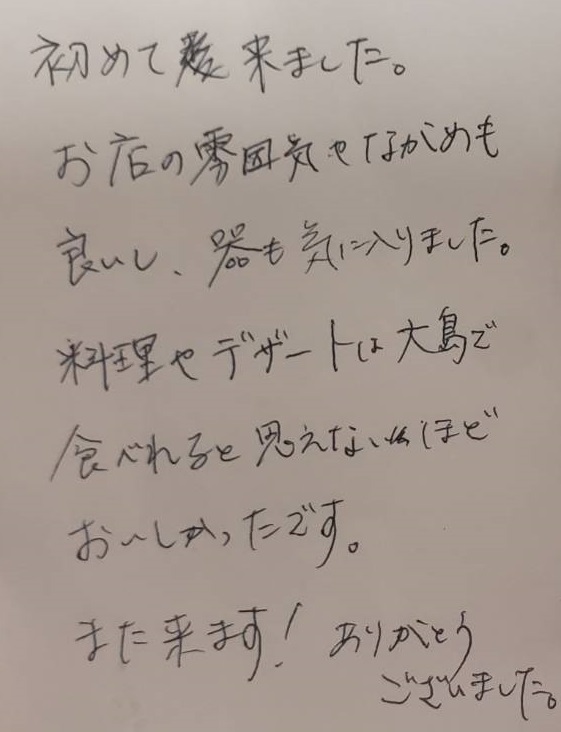 初めて来ました。
お店の雰囲気やながめも
良いし、器も気に入りました。
料理やデザートは大島で
食べれると思えないほど
おいしかったです。
また来ます！ありがとう
ございました。